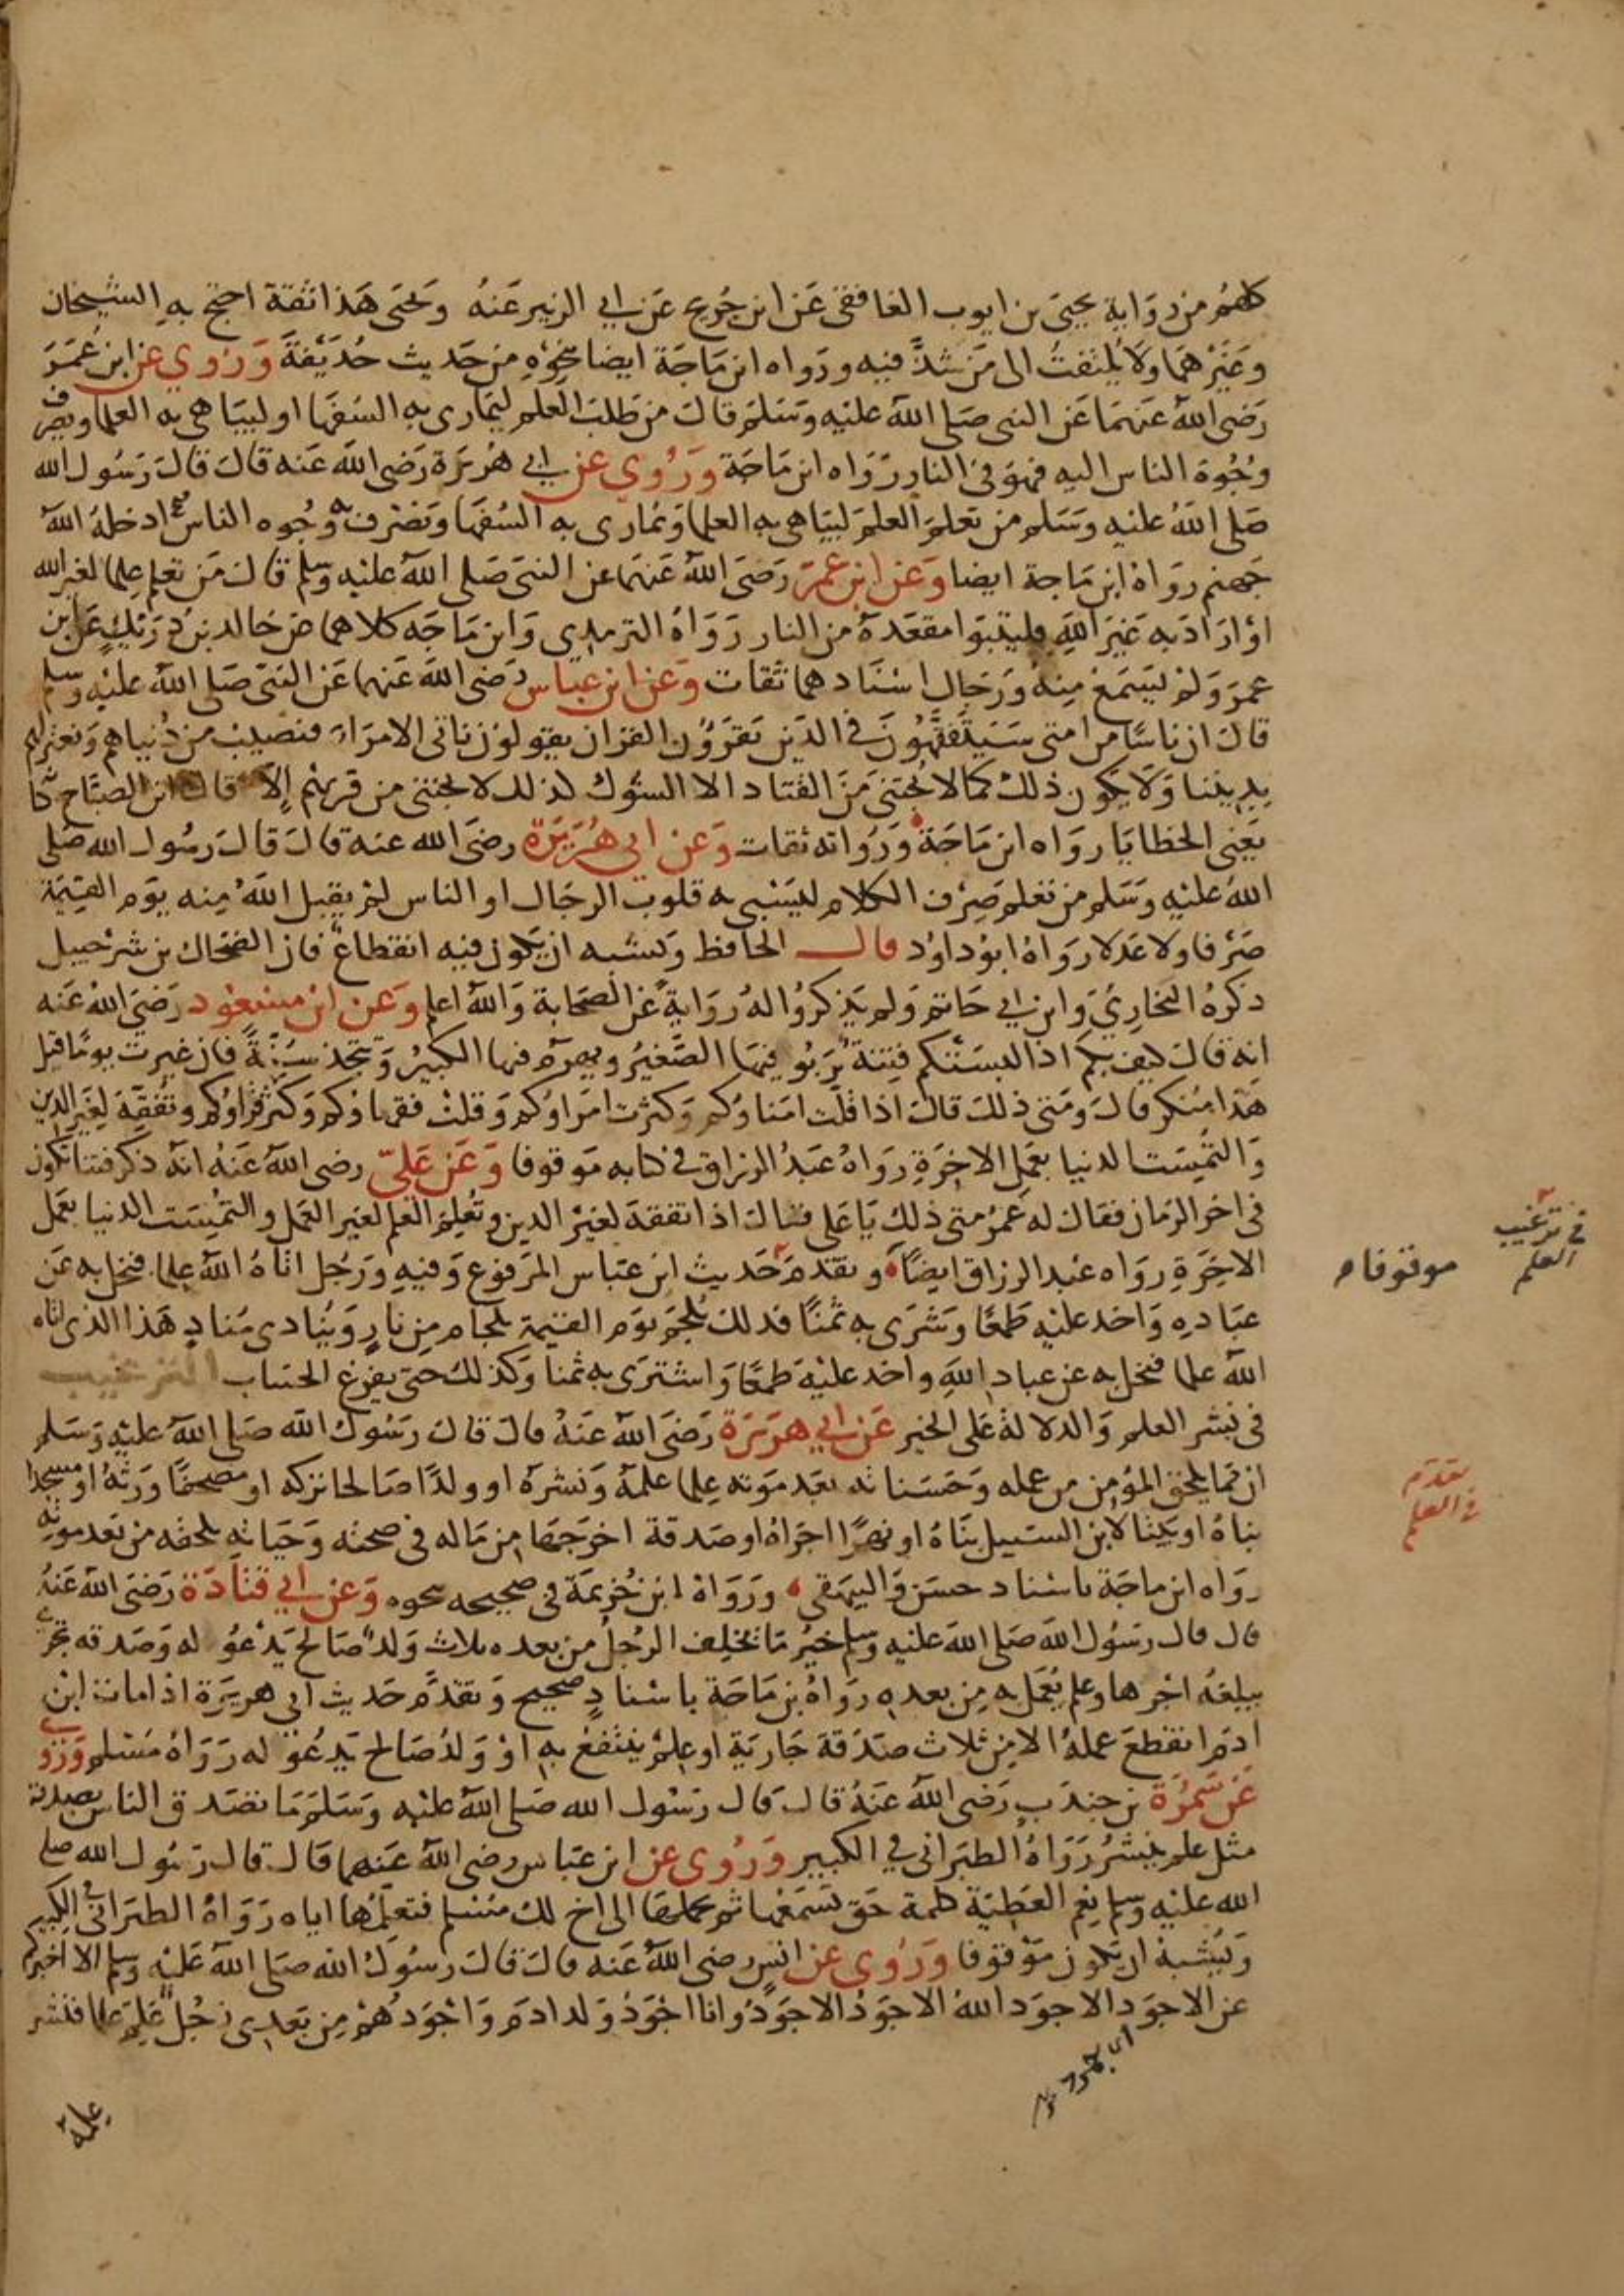 كلهم من رواية يحيى بن ايوب الغافقي عن ابن جريج عن ابي الزبير عنه ويحيى هذا ثقة احتج به الشيخان
وغيرهما ولا يلتفت الى من شذ فيه ورواه ابن ماجة ايضا بنحوه من حديث حذيفة وروي عن ابن عمر
رضي الله عنهما عن النبي صلى الله عليه وسلم قال من طلب العلم ليماري به السفها او ليباهي به العلما ويصرف
وجوه الناس اليه فهو في النار رواه ابن ماجة وروي عن ابي هريرة رضي الله عنه قال قال رسول الله
صلى الله عليه وسلم من تعلم العلم ليباهي به العلما ويماري به السفها ويصرف به وجوه الناس ادخله الله
جهنم رواه ابن ماجة ايضا وعن ابن عمر رضي الله عنهما عن النبي صلى الله عليه وسلم قال من تعلم علما لغير الله
او اراد به غير الله فليتبوا مقعده من النار رواه الترمذي وابن ماجه كلاهما عن خالد بن دريك عن ابن
عمر ولم يسمع منه ورجال اسنادهما ثقات وعن ابن عباس رضي الله عنهما عن النبي صلى الله عليه وسلم
قال ان ناسا من امتي سيتفقهون في الدين يقرؤن القران يقولون ناتي الامراء فنصيب من دنياهم ونعتزلهم
بديننا ولا يكون ذلك كما لا يجتنى من القتاد الا الشوك كذلك لا يجتنى من قربهم إلا قال ابن الصباح كا
يعني الخطايا رواه ابن ماجة ورواته ثقات وعن ابي هريرة رضي الله عنه قال قال رسول الله صلى
الله عليه وسلم من تعلم صرف الكلام ليسبي به قلوب الرجال او الناس لم يقبل الله منه يوم القيمة
صرفا ولا عدلا رواه ابو داود قال الحافظ ويشبه ان يكون فيه انقطاع فان الضحاك بن شرحبيل
ذكره البخاري وابن ابي حاتم ولم يذكروا له رواية عن الصحابة والله اعلم وعن ابن مسعود رضي الله عنه
انه قال كيف بكم اذا لبستكم فتنة يربو فيها الصغير ويهرم فيها الكبير وتتخذ سنة فان غيرت يوما قيل
هذا منكر قال ومتى ذلك قال اذا قلت امناؤكم وكثرت امراؤكم وقلت فقهاؤكم وكثر قراؤكم وتفقه لغير الدين
والتمست الدنيا بعمل الاخرة رواه عبد الرزاق في كتابه موقوفا وعن علي رضي الله عنه انه ذكر فتنا تكون
في اخر الزمان فقال له عمر متى ذلك يا علي فقال اذا تفقه لغير الدين وتعلم العلم لغير العمل والتمست الدنيا بعمل
الاخرة رواه عبد الرزاق ايضا وتقدم حديث ابن عباس المرفوع وفيه ورجل اتاه الله علما فبخل به عن
عباده واخذ عليه طمعا وشرى به ثمنا فذلك يلجم يوم القيمة بلجام من نار وينادي مناد هذا الذي اتاه
الله علما فبخل به عن عباد الله واخذ عليه طمعا واشترى به ثمنا وكذلك حتى يفرغ الحساب الترغيب
في نشر العلم والدلالة على الخير عن ابي هريرة رضي الله عنه قال قال رسول الله صلى الله عليه وسلم
ان مما يلحق المؤمن من عمله وحسناته بعد موته علما علمه ونشره او ولدا صالحا تركه او مصحفا ورثه او مسجدا
بناه او بيتا لابن السبيل بناه او نهرا اجراه او صدقة اخرجها من ماله في صحته وحياته يلحقه من بعد موته
رواه ابن ماجة باسناد حسن والبيهقي ورواه ابن خزيمة في صحيحه بنحوه وعن ابي قتادة رضي الله عنه
قال قال رسول الله صلى الله عليه وسلم خير ما يخلف الرجل من بعده ثلاث ولد صالح يدعو له وصدقة تجري
يبلغه اجرها وعلم يعمل به من بعده رواه بن ماجة باسناد صحيح وتقدم حديث ابي هريرة اذا مات ابن
ادم انقطع عمله الا من ثلاث صدقة جارية او علم ينتفع به او ولد صالح يدعو له رواه مسلم وروي
عن سمرة بن جندب رضي الله عنه قال قال رسول الله صلى الله عليه وسلم ما تصدق الناس بصدقة
مثل علم ينشر رواه الطبراني في الكبير وروي عن ابن عباس رضي الله عنهما قال قال رسول الله صلى
الله عليه وسلم نعم العطية كلمة حق تسمعها ثم تحملها الى اخ لك مسلم فتعلمها اياه رواه الطبراني في الكبير
ويشبه ان يكون موقوفا وروي عن انس رضي الله عنه قال قال رسول الله صلى الله عليه وسلم الا اخبركم
عن الاجود الاجود الله الاجود الاجود وانا اجود ولد ادم واجودهم من بعدي رجل علم علما فنشر
علمه
في ترغيب
العلم
موقوفا
تقدم
في العلم